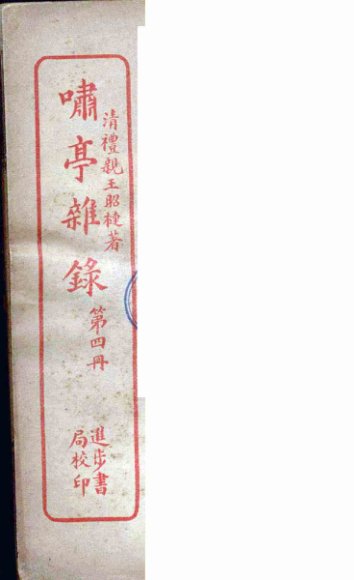 清禮親王昭槤著
嘯亭雜錄
第四冊
進步書
局校印